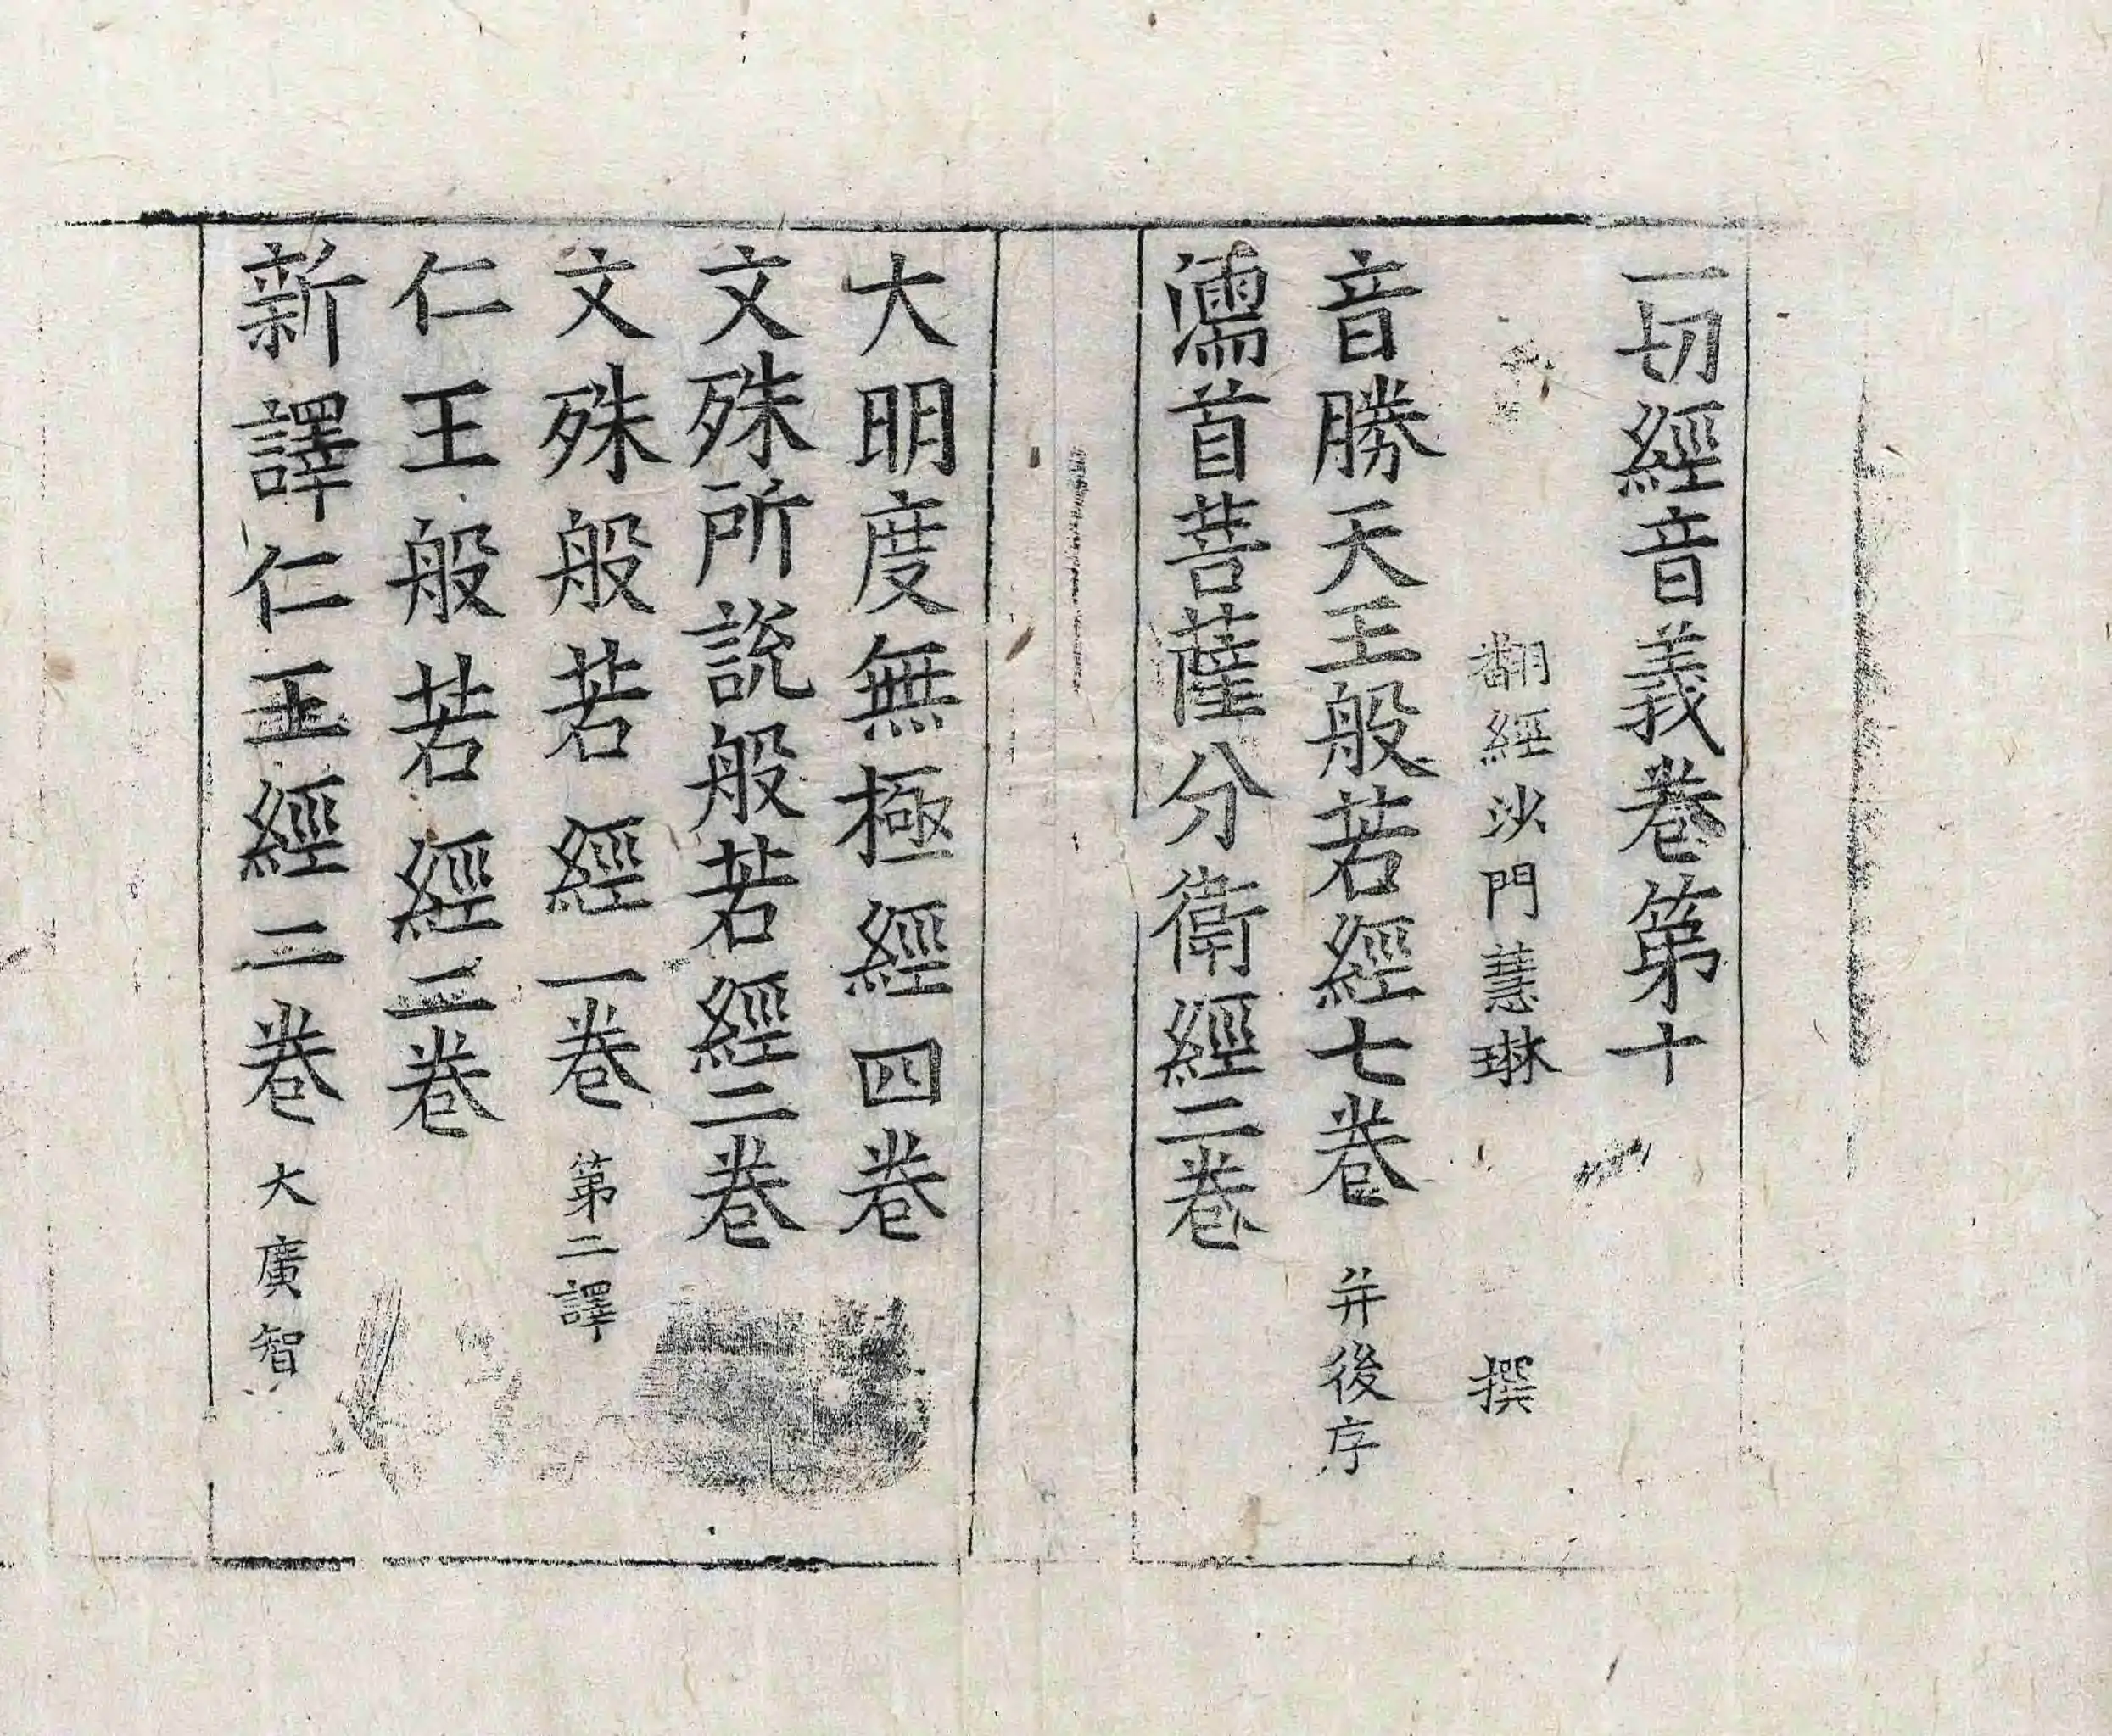 一切經音義卷第十
翻經沙門慧琳 撰
音勝天王般若經七卷 并後序
濡首菩薩分衛經二卷
大明度無極經四卷
文殊所說般若經二卷
文殊般若經一卷 第二譯
仁王般若經二卷
新譯仁王經二卷 大廣智